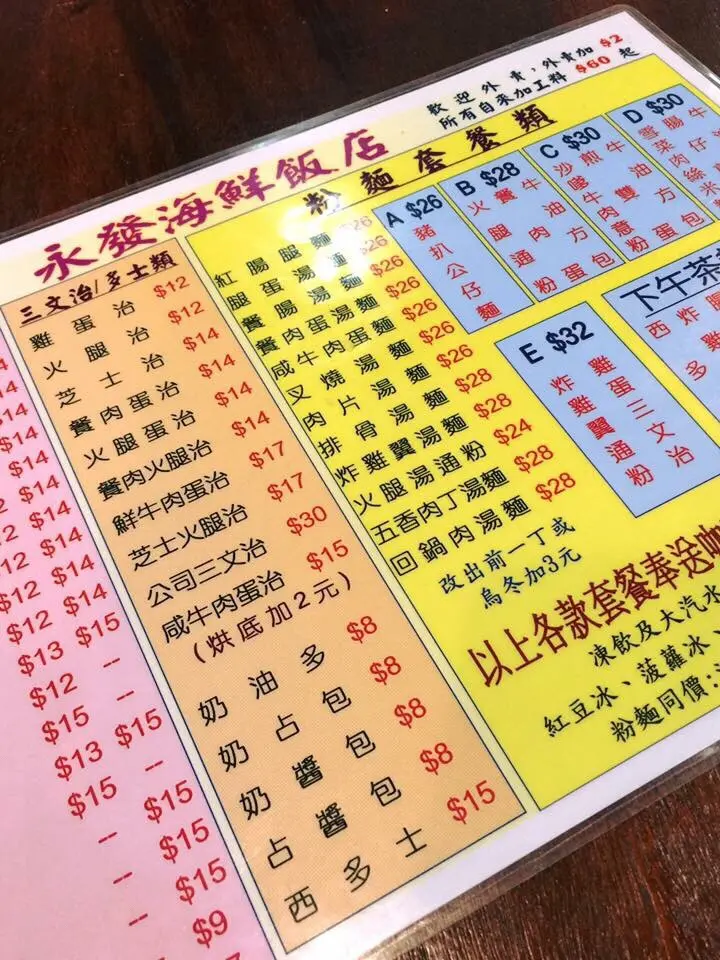 歡迎外賣，外賣加 $2
所有自來加工料 $60 起
永發海鮮飯店
三文治/多士類
雞蛋治 $12
火腿治 $12
芝士治 $14
餐肉蛋治 $14
火腿蛋治 $14
餐肉火腿治 $14
鮮牛肉蛋治 $17
芝士火腿治 $17
公司三文治 $30
咸牛肉蛋治 $15
(烘底加2元)
奶油多 $8
奶占包 $8
奶醬包 $8
占醬包 $8
西多士 $15
粉麵套餐類
紅腸腿麵 $26
腿蛋湯麵 $26
餐腸湯麵 $26
餐肉蛋湯麵 $26
咸牛肉蛋麵 $26
叉燒湯麵 $26
肉片湯麵 $26
排骨湯麵 $28
炸雞翼湯麵 $28
火腿湯通粉 $24
五香肉丁湯麵 $28
回鍋肉湯麵 $28
改出前一丁或
烏冬加3元
A $26
豬扒公仔麵
B $28
火腿通粉
餐肉蛋
牛油方包
C $30
沙嗲牛肉意粉
煎雙蛋
牛油方包
D $30
雪菜肉絲米
腸仔
牛
E $32
炸雞翼通粉
雞蛋三文治
下午茶
西
多
炸
雞
腿
以上各款套餐奉送咖
凍飲及大汽水
紅豆冰、菠蘿冰、
粉麵同價:
$14
$14
$14
$14
$14
$12 $14
$12 $14
$12 $14
$12 $15
$13 --
$12 --
$15 $15
$13 --
$15 $15
-- $15
-- $15
-- $9